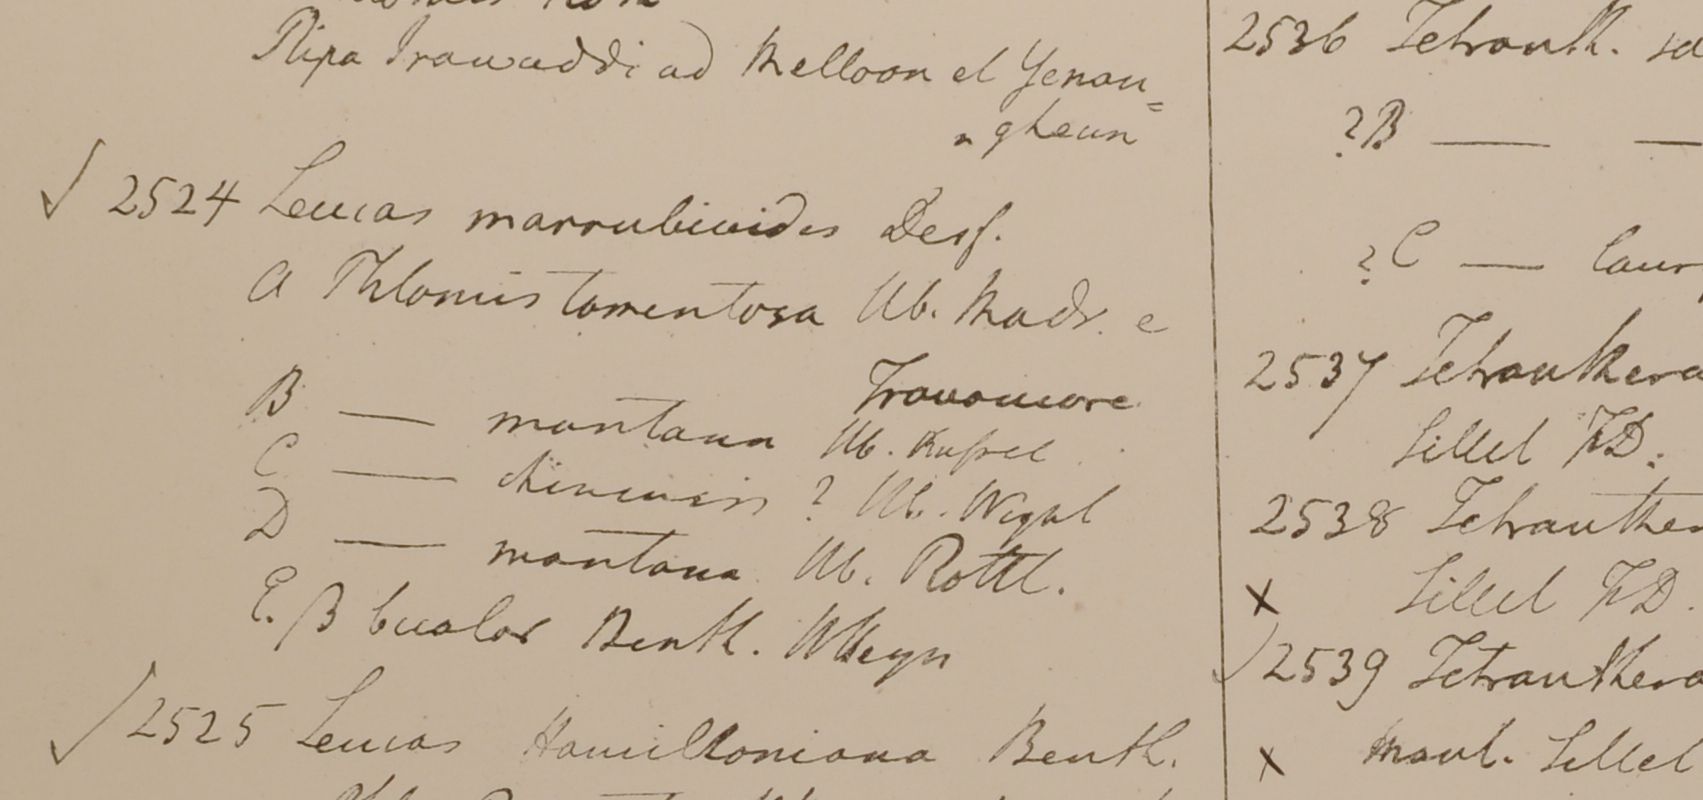 Ripa Irawaddi ad Melloon et Yenan=
"gheun
√ 2524 Leucas marrubioides Desf.
A Phlomis tomentosa Hb. Madr. e
Travancore
B — montana Hb. Russel
C — chinensis ? Hb. Wight
D — montana Hb. Rottl.
E. β bicolor Benth. Hb Heyn
√ 2525 Leucas Hamiltoniana Benth.
2536 Tetranth.
?B — —
?C — laur
2537 Tetranthera
Sillet FD.
2538 Tetranther
x Sillet FD.
√ 2539 Tetranthera
x mont. Sillet